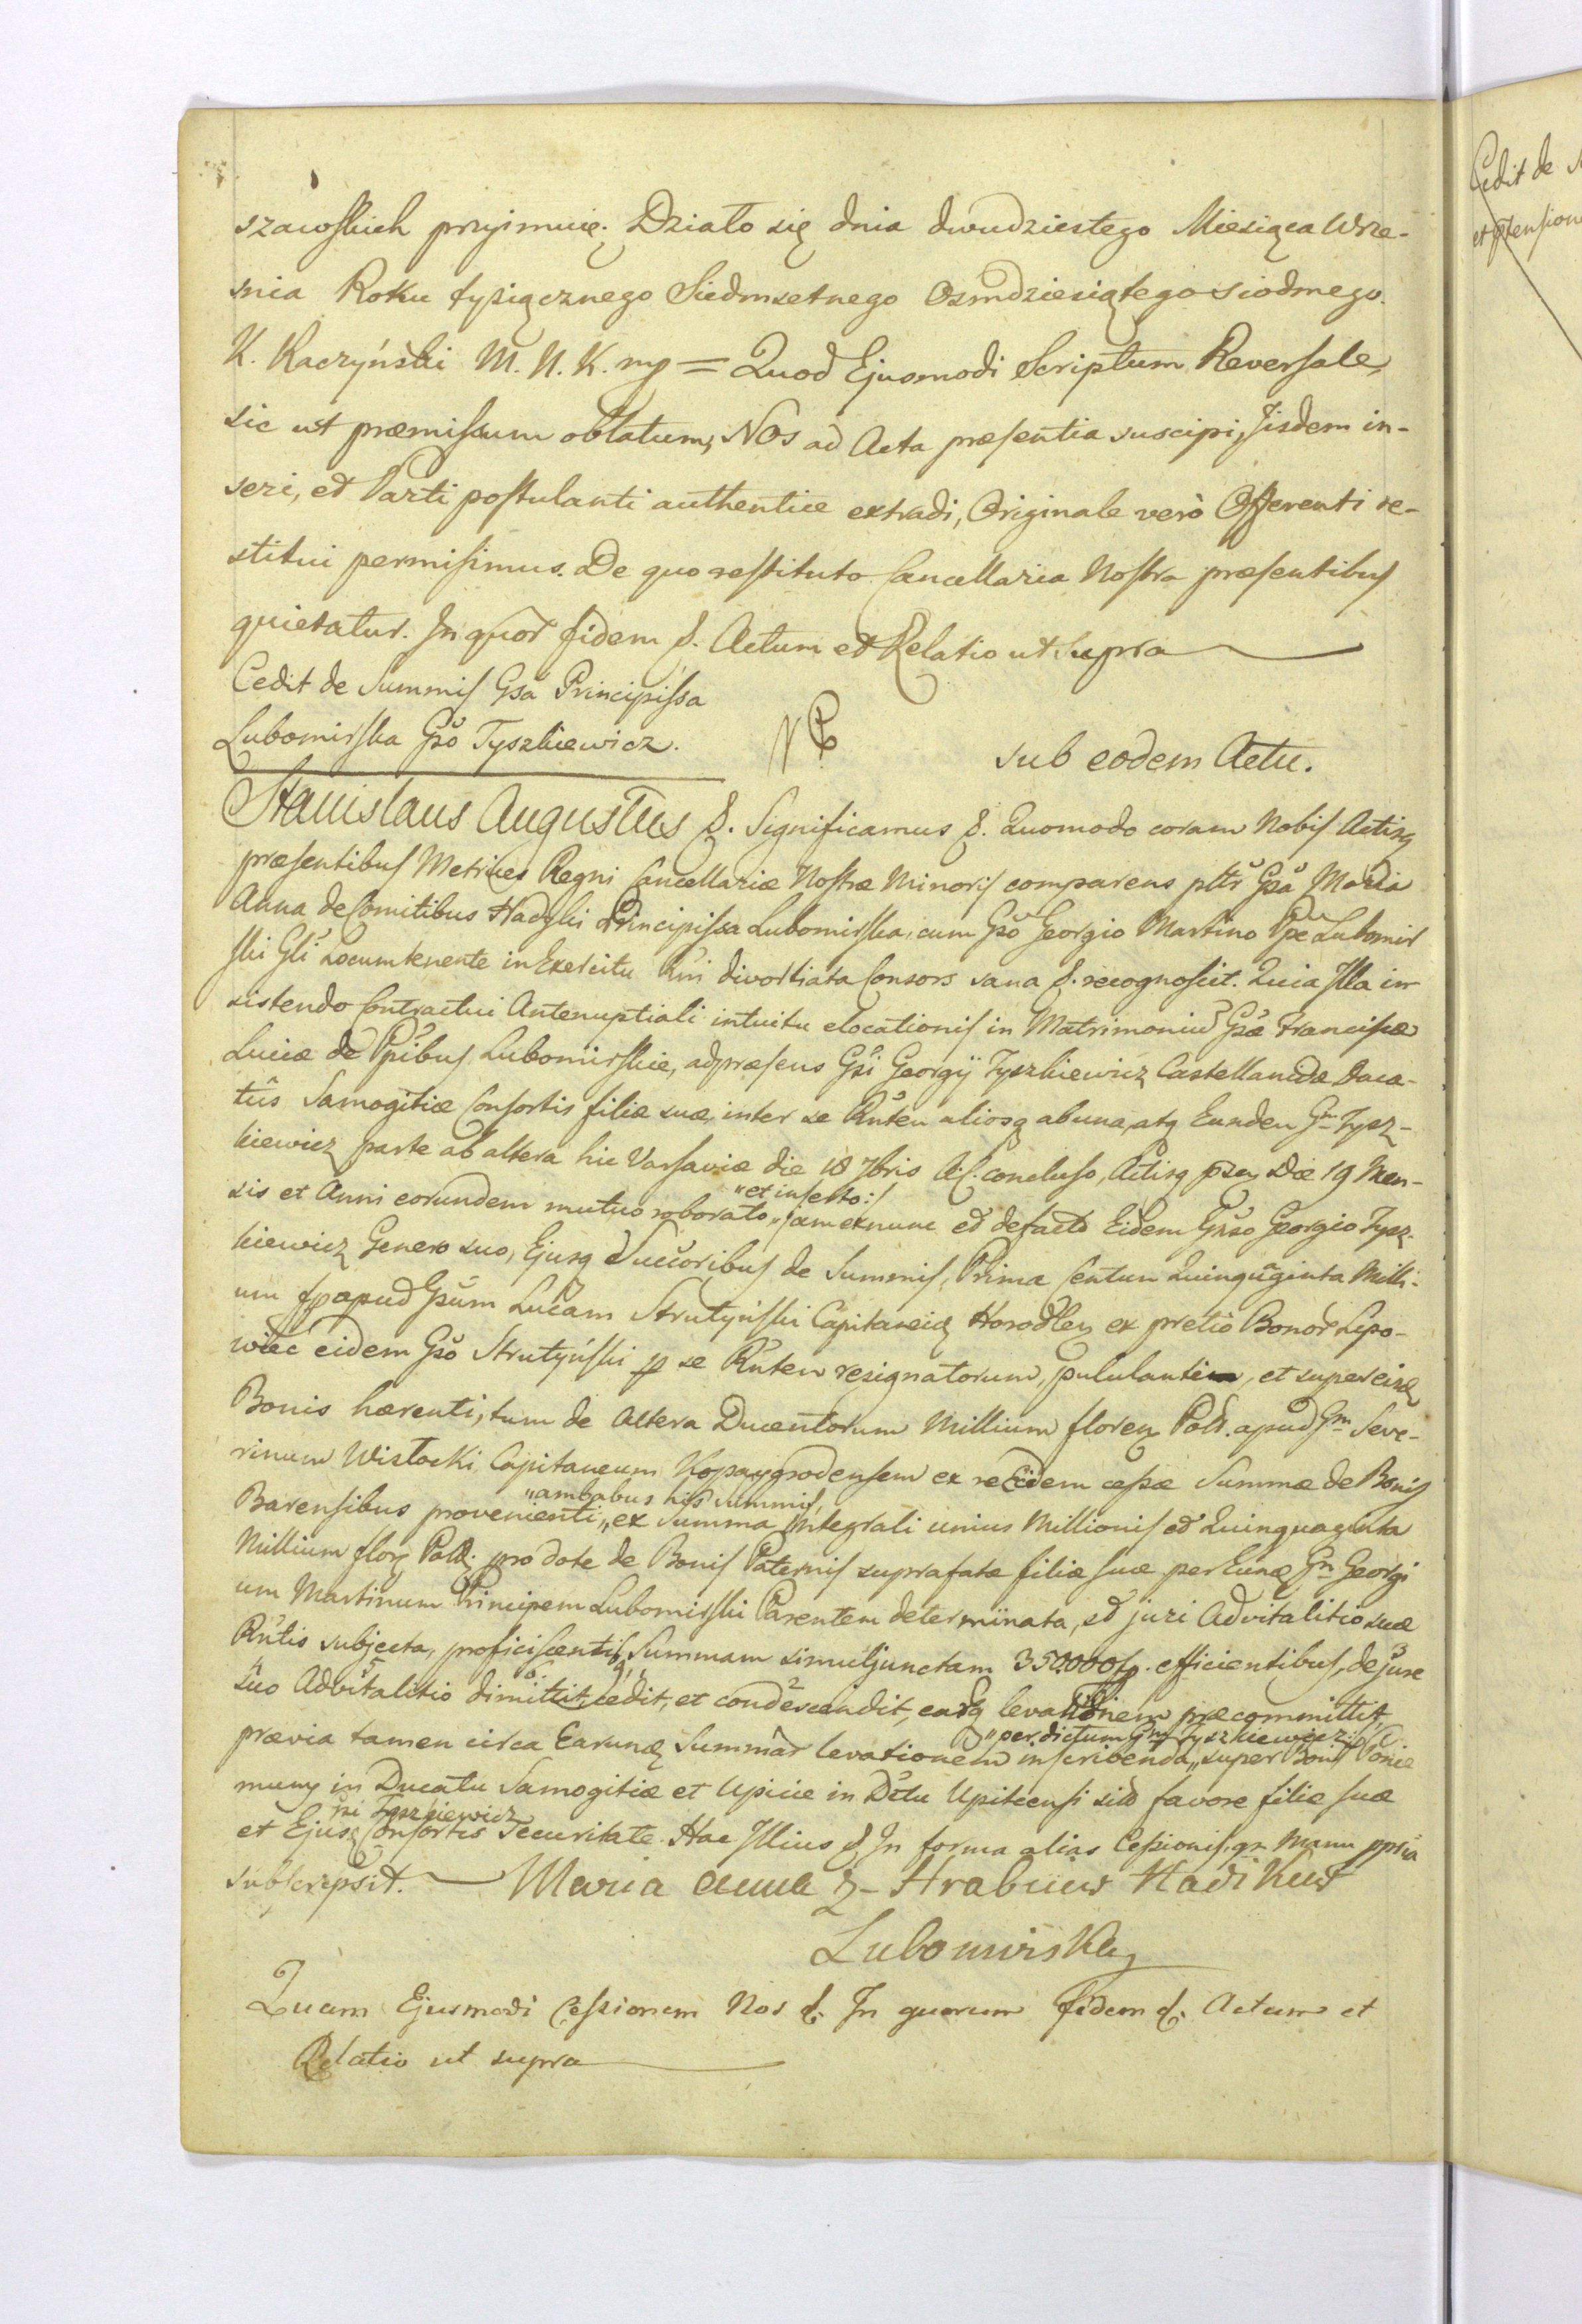 szawskich przyimuię. Działo się dnia dwudziestego Miesiąca Wrze-
snia Roku tysiącznego Siedmsetnego Osmdziesiątego siodmego.
K. Raczyński M. N. K. mp = Quod Ejusmodi Scriptum Reversale,
sic ut præmissum oblatum, Nos ad Acta præsentia suscipi, Iisdem in-
seri, et Parti postulanti authentice extradi, Originale verò Offerenti re-
stitui permisimus. De quo restituto Cancellaria Nostra præsentibus
quietatur. In quor fidem &. Actum et Relatio ut Supra
Cedit de Summis Gsa Principissa
Lubomirska Gso Tyszkiewicz.
sub eodem Actu.
Stanislaus Augustus &. Significamus &. Quomodo coram Nobis Actisq
præsentibus Metrices Regni Cancellariæ Nostræ Minoris comparens pltr Gsa Maria
Anna de Comitibus Hadyki Principissa Lubomirska, cum Gso Georgio Martino Ppe Lubomir
ski Gli Locumtenente in Exercitu Rni divortiata Consors sana &. recognoscit. Quia Illa in-
sistendo Contractui Antenuptiali intuitu elocationis in Matrimoniu Gsæ Franciscæ
Luciæ de Ppibus Lubomirskie, ad præsens Gsi Georgÿ Tyszkiewicz Castellanidæ Duca-
tûs Samogitiæ Consortis filiæ suæ, inter se Rnten aliosq ab una, atq Eunden Gm Tysz-
kiewicz parte ab altera hic Varsaviæ die 18 7bris A. C. concluso, Actisq psen Die 19 Men-
sis et Anni eorundem mutuo roborato „et inserto:/ jam exnunc et defacto Eidem Gso Georgio Tysz-
kiewicz Genero suo, Ejusq Succoribus de Summis, Prima Centun Quinquginta Milli-
um fp apud Gsum Lucam Strutyński Capitaneid Horodlen ex pretio Bonor Lipo-
wiec eidem Gso Strutyński p se Rnten resignatorum, pululanti, et super eisd
Bonis hærenti, tum de Altera Ducentorum Millium floren Pold. apud Gm Seve-
rinum Wisłocki Capitaneum Kopaygrodensem ex re Eidem cessæ Summæ de Bonis
Barensibus provenienti, „ambabus his summis, ex Summa Integrali unius Millionis et Quinquaginta
Millium flor Pold. pro dote de Bonis Paternis suprafatæ filiæ suæ per Eund Gm Georgi
um Martinum Principem Lubomirski Parentem determinata, et juri Advitalitio suæ
Rntis subjecta, proficiscentis, Summam simul junctam 350.000 fp. efficientibus, de jure
suo Advitalitio dimittit, cedit, et condescendit, eardq levationem præcommittit,
prævia tamen circa Earund Summar levationem „per dictum Gm Tyszkiewicz:/ inscribenda, super Bonis Ponie
muny in Ducatu Samogitiæ et Upicie in Dctu Upitensi sitis favore filiæ suæ
et Ejusq Consortis rsi Tyszkiewicz Securitate. Hac Illius & In forma alias Cessionis. qr. Manu ppria
subscripsit. Maria Anna z Hrabiow Hadikow
Lubomirska
Quam Ejusmodi Cessionem Nos &. In quorum fidem &. Actum et
Relatio ut supra
Cedit de